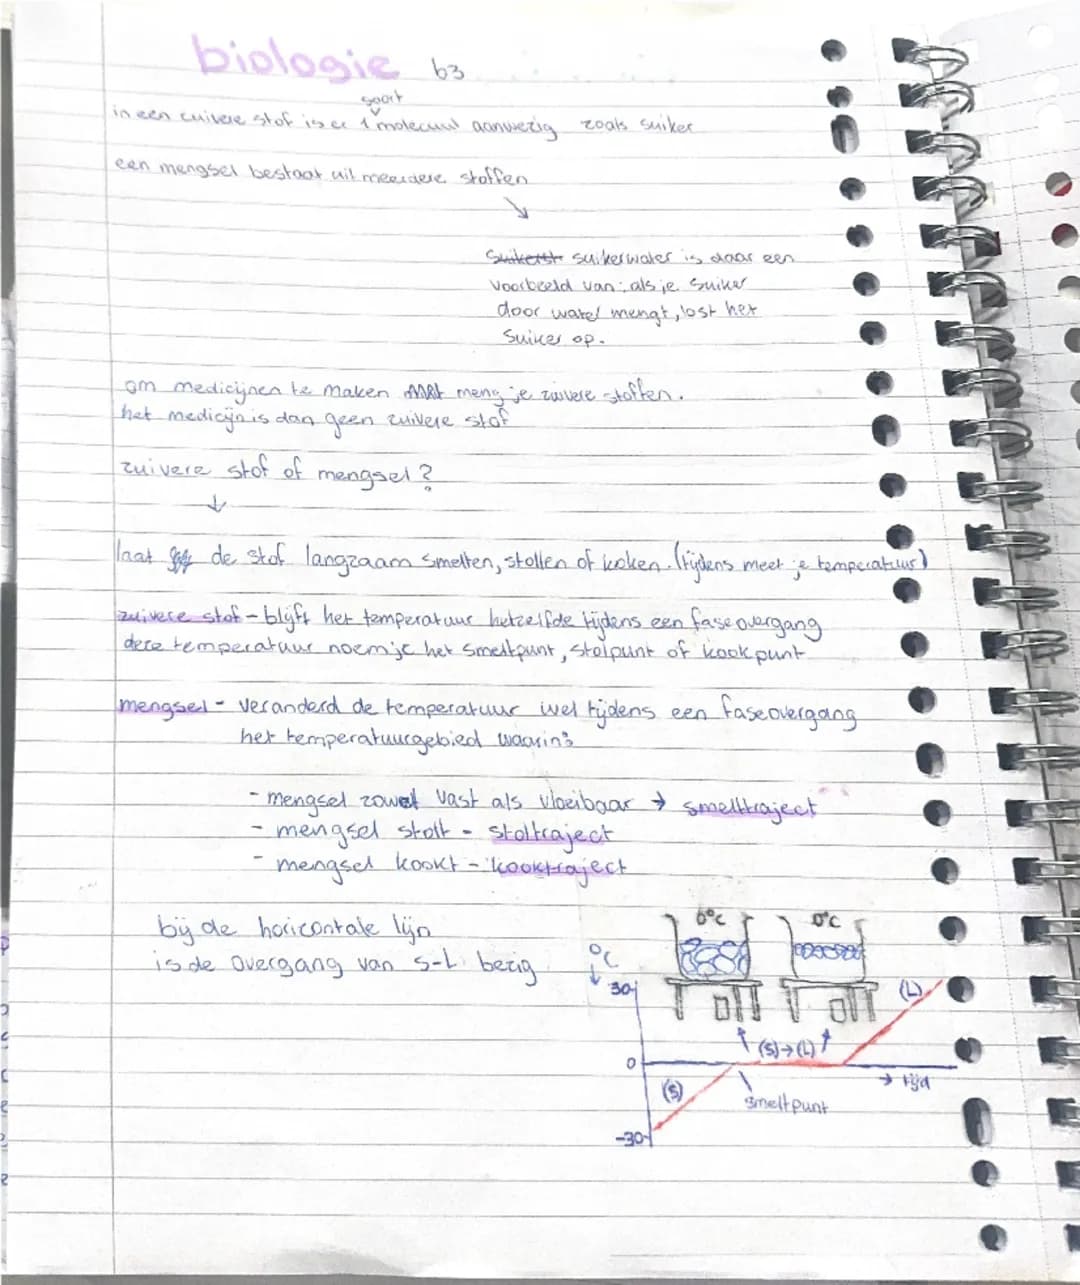 biologie b3
soort
in een zuivere stof is er 1 molecuul aanwezig zoals suiker
een mengsel bestaat uit meerdere stoffen
suikerwater is daar een
voorbeeld van; als je suiker
door water mengt, lost het
suiker op.
om medicijnen te maken meng je zuivere stoffen.
het medicijn is dan geen zuivere stof
zuivere stof of mengsel?
laat de stof langzaam smelten, stollen of koken. (tijdens meet je temperatuur)
zuivere stof - blijft het temperatuur hetzelfde tijdens een fase overgang
deze temperatuur noem je het smeltpunt, stolpunt of kookpunt
mengsel - veranderd de temperatuur wel tijdens een faseovergang
het temperatuurgebied waarin:
- mengsel zowel vast als vloeibaar → smelttraject
- mengsel stolt - stoltraject
- mengsel kookt - kooktraject
bij de horizontale lijn
is de overgang van s-L bezig
0°c 0°c
°C
↓
30
(L)
(S)→(L)
0
→ tijd
(S)
smeltpunt
-30